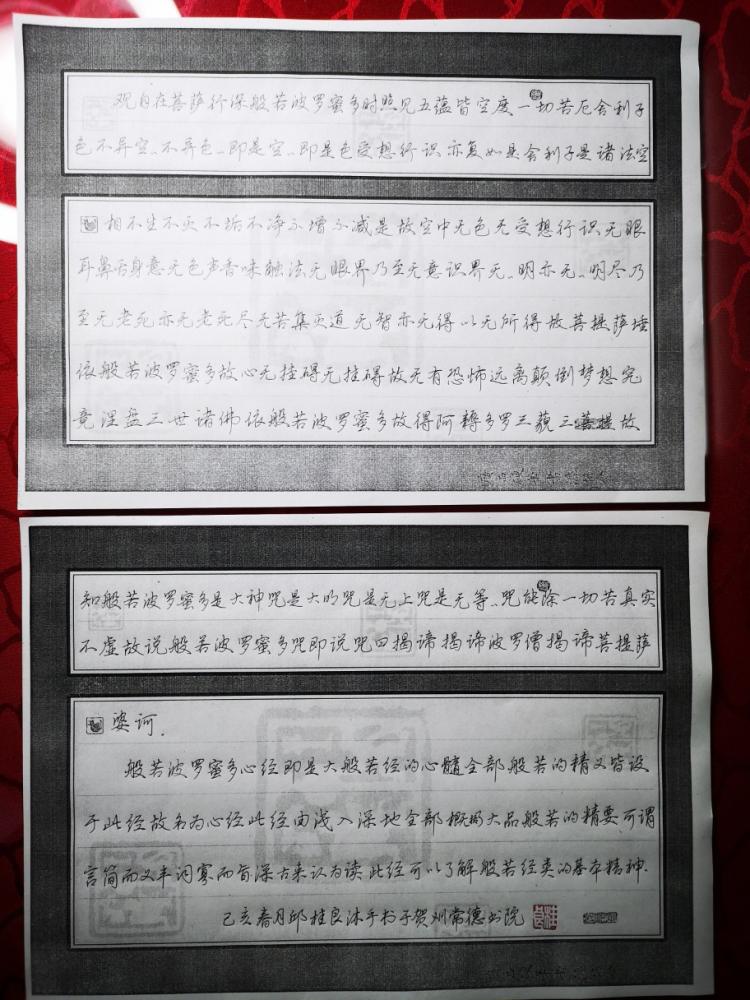 观自在菩萨行深般若波罗蜜多时照见五蕴皆空度一切苦厄舍利子
色不异空〻不异色〻即是空〻即是色受想行识亦复如是舍利子是诸法空
相不生不灭不垢不净不增不减是故空中无色无受想行识无眼
耳鼻舌身意无色声香味触法无眼界乃至无意识界无〻明亦无〻明尽乃
至无老死亦无老死尽无苦集灭道无智亦无得以无所得故菩提萨埵
依般若波罗蜜多故心无挂碍无挂碍故无有恐怖远离颠倒梦想究
竟涅盘三世诸佛依般若波罗蜜多故得阿耨多罗三藐三菩提故
知般若波罗蜜多是大神咒是大明咒是无上咒是无等〻咒能除一切苦真实
不虚故说般若波罗蜜多咒即说咒曰揭谛揭谛波罗僧揭谛菩提萨
婆诃.
般若波罗蜜多心经即是大般若经的心髓全部般若的精义皆设
于此经故名为心经此经由浅入深地全部概括大品般若的精要可谓
言简而义丰词寡而旨深古来认为读此经可以了解般若经类的基本精神.
己亥春月邱桂良沐手书于贺州常德书院